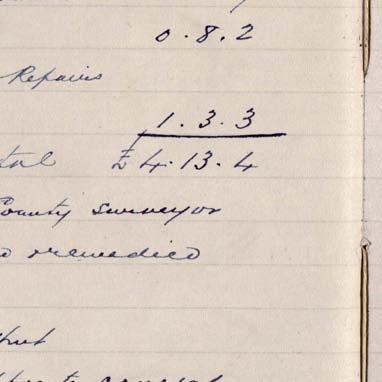 0 . 8 . 2
Repairs
1 . 3 . 3
tal £ 4 . 13 . 4
County Surveyor
remedied